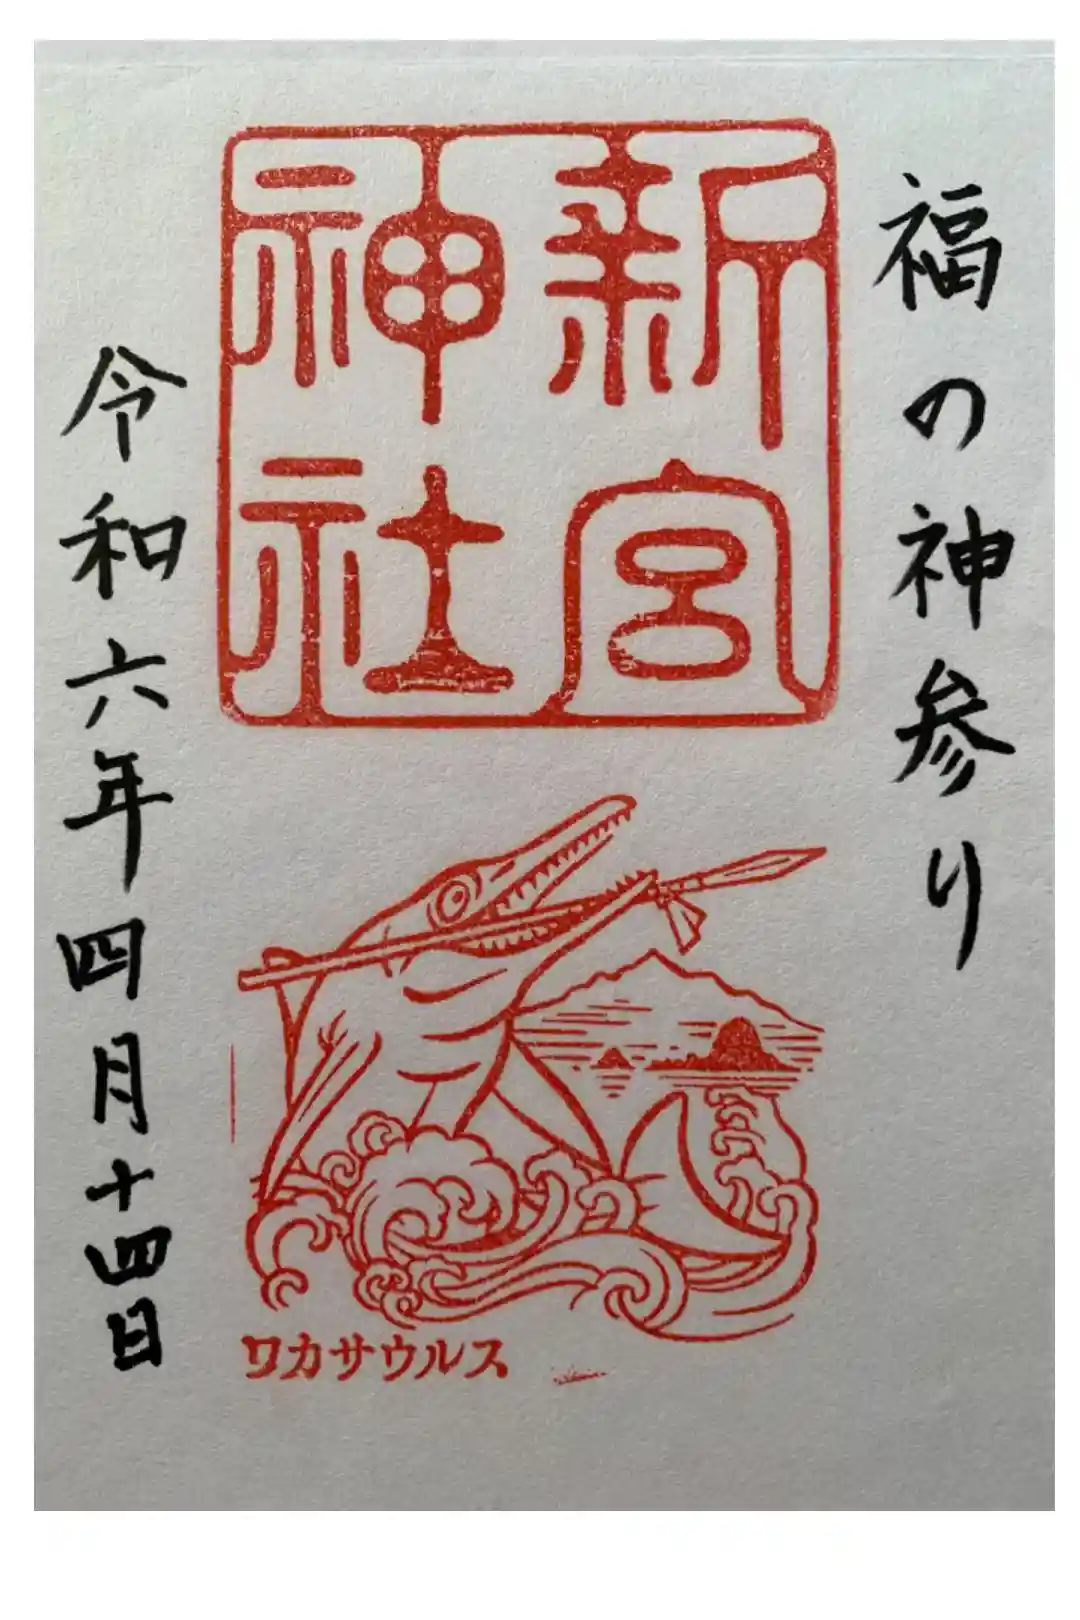 福の神参り
新宮
神社
令和六年四月十四日
ワカサウルス